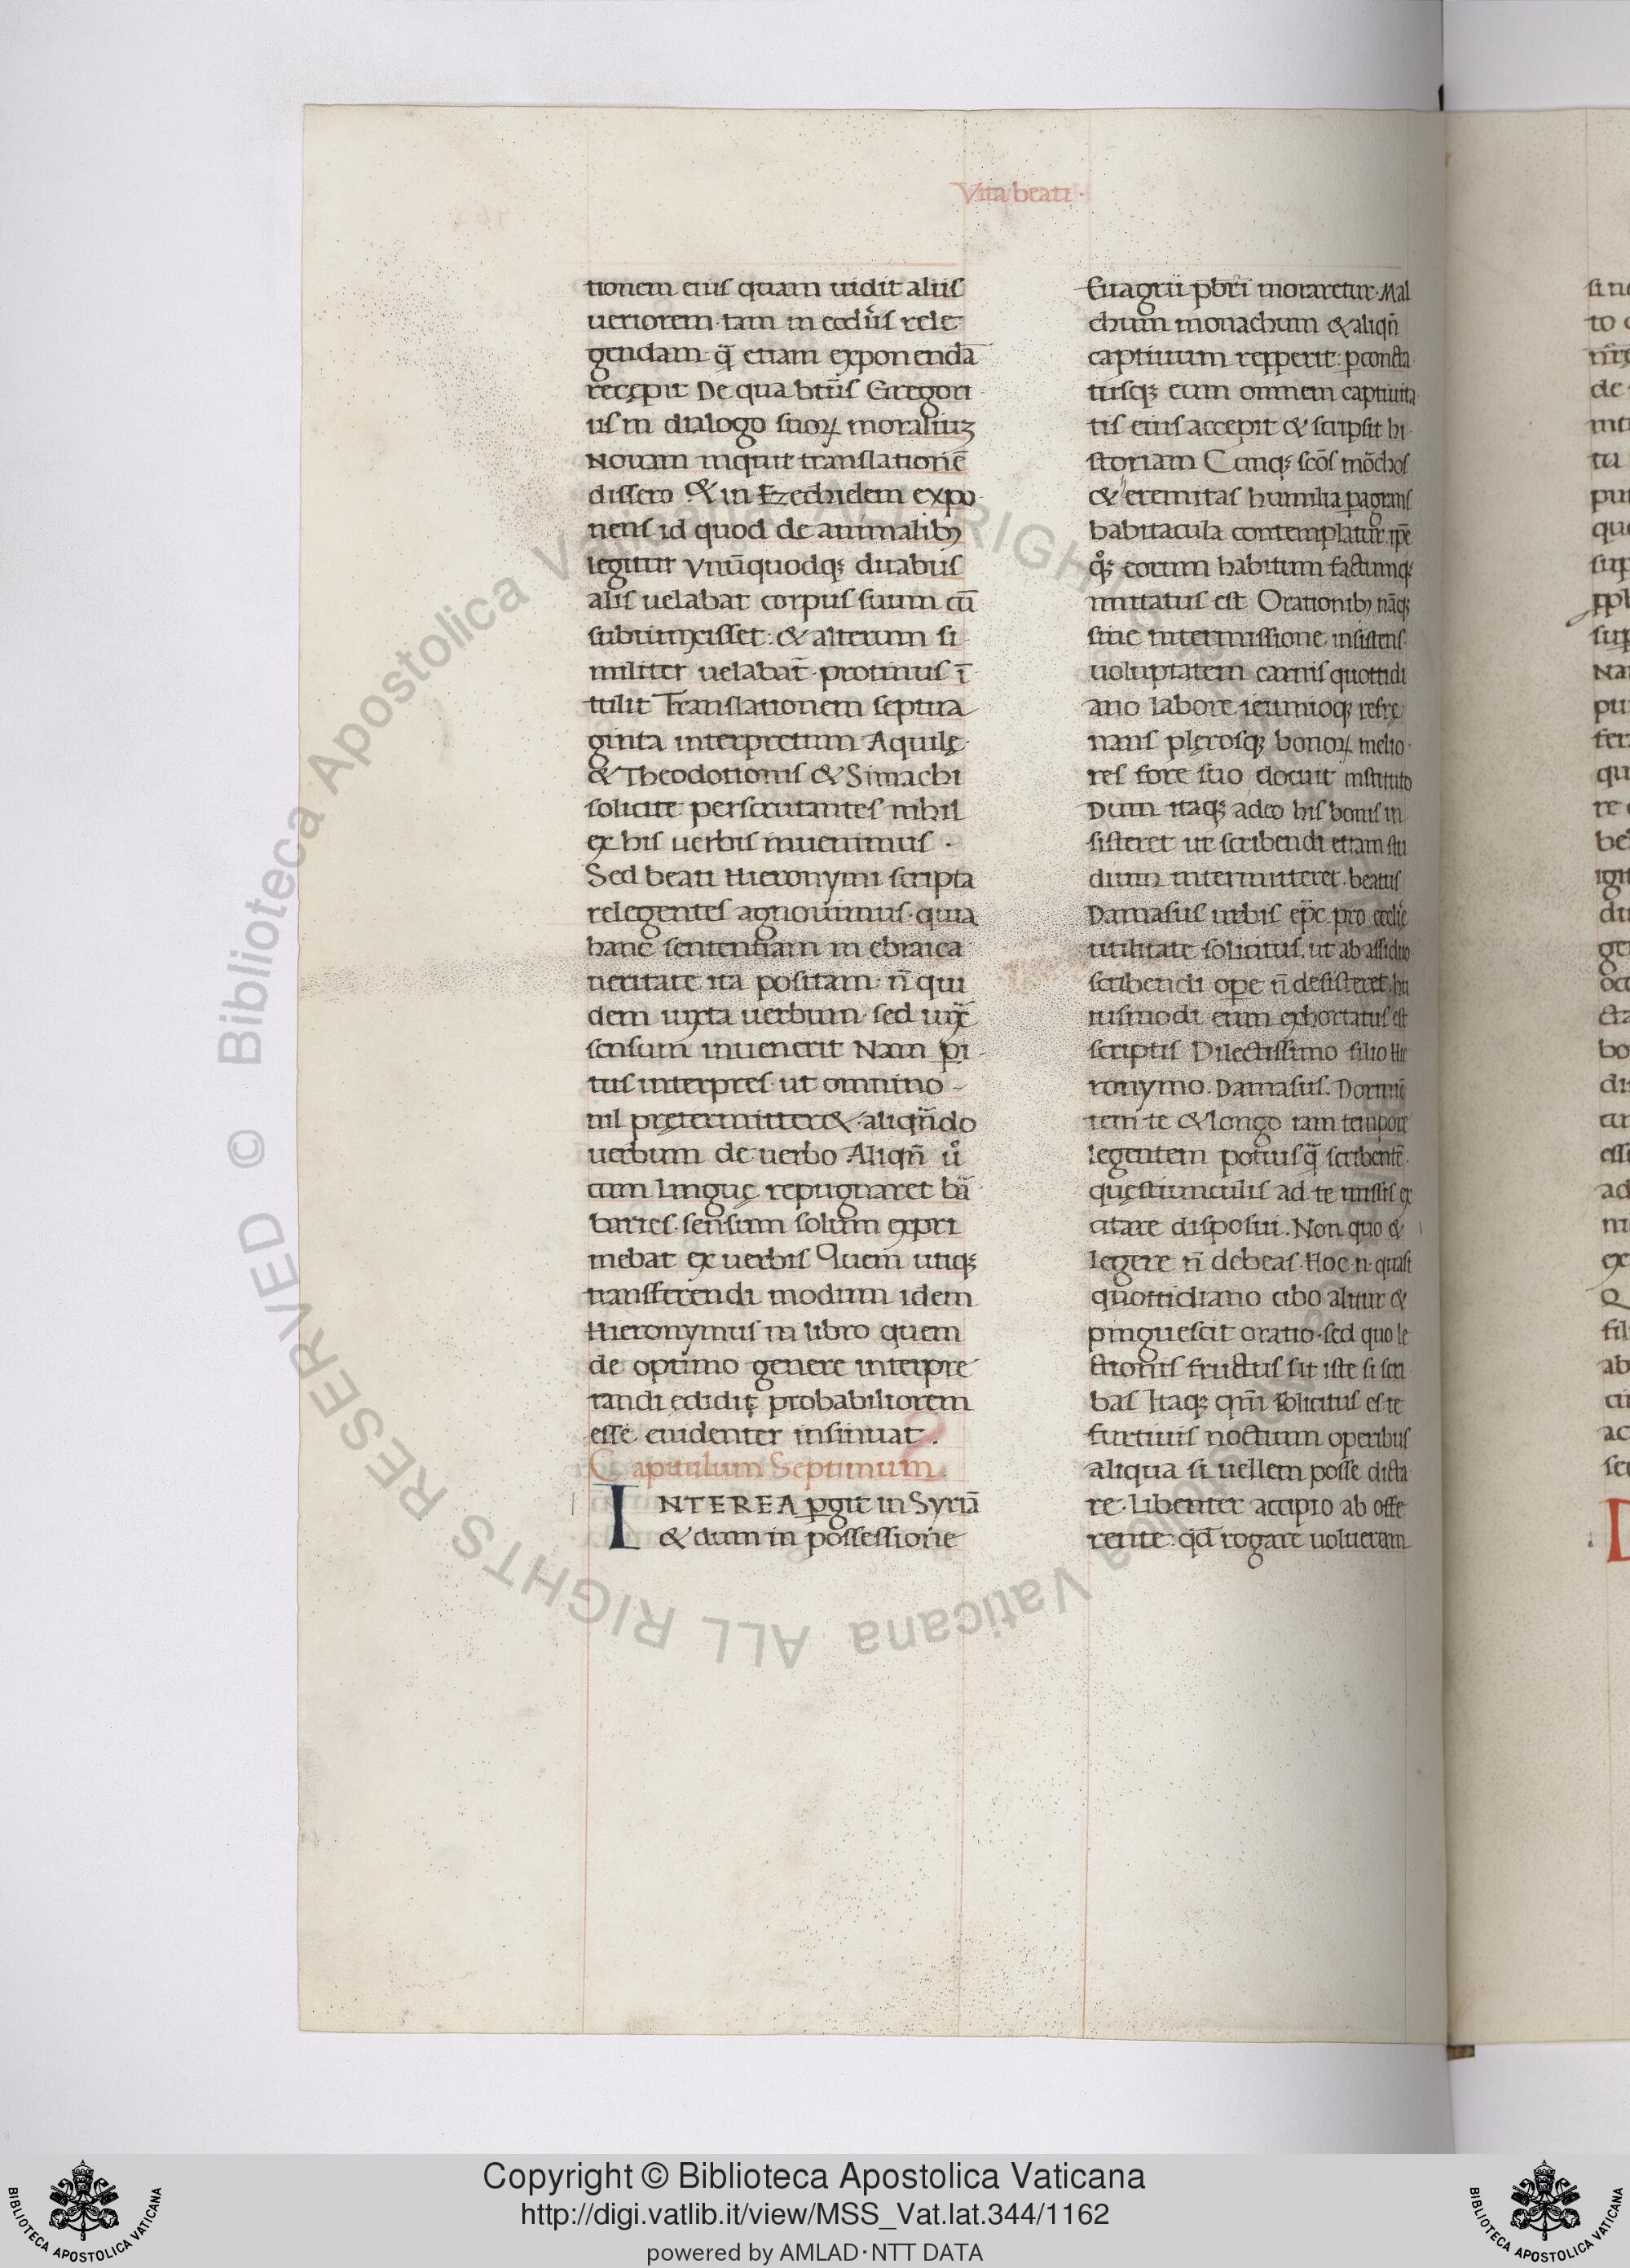 Vita beati ·
tionem eius quam uidit aliis
ueriorem · tam in ecclіis rele
gendam · q̃ etiam exponendā
recepit De qua btūs Gregori
us in dialogo suoꝝ moraliuꝫ
Nouam inquit translationē
dissero Et in Ezechielem expo
nens id quod de animalibꝫ
legitur Vnūquodqꝫ duabus
alis uelabat corpus suum cū
subiunxisset : & alterum si
militer uelabat̄ · protinus ī
tulit Translationem septua
ginta interpretum Aquilę
& Theodotionis & Simachi
solicite perscrutantes nihil
ex his uerbis inuenimus ·
Sed beati Hieronymi scripta
relegentes agnouimus · quia
hanc sententiam in ebraica
ueritate ita positam · ñ qui
dem iuxta uerbum · sed iux̃
sensum inuenerit Nam pi
tus interpres · ut omnino
nil prętermitter& · aliqñdo
uerbum de uerbo Aliqñ ů
cum linguę repugnaret bā
baries · sensum solum expri
mebat ex uerbis Quem utiqꝫ
transferendi modum idem
Hieronymus in libro quem
de optimo genere interpre
tandi edidit · probabiliorem
esse euidenter insinuat .
Capitulum Septimum .
INTEREA pgit in Syriā
& dum in possessione
Euagrii p̄bri moraretur · Mal
chum monachum & aliqñ
captiuum repperit : pconcta
tusqꝫ eum omnem captiuita
tis eius accepit & scripsit hi
storiam Cunqꝫ scōs mōchos
& eremitas humilia pagrans
habitacula contemplatur · ip̄e
q̊qꝫ eorum habitum factumqꝫ
imitatus est Orationibꝫ nāqꝫ
sine intermissione insistens
uoluptatem carnis quottidi
ano labore · ieiunioqꝫ refrę
nans plerosqꝫ bonoꝝ melio
res fore suo docuit instituto
Dum itaqꝫ adeo his bonis in
sisteret ut scribendi etiam stu
dium intermitteret · beatus
Damasus urbis ep̄c · pro ecclię
utilitate solicitus · ut ab assiduo
scribendi ope ñ desisteret · hu
iusmodi eum exhortatus est
scriptis Dilectissimo filio Hie
ronymo . Damasus . Dormiē
tem te & longo iam tempore
legentem potiusq̃ scribentē
questiunculis ad te missis ex
citare disposui . Non quo &
legere ñ debeas · Hoc .n. quasi
quottidiano cibo alitur &
pinguescit oratio · sed quo le
ctionis fructus sit iste si scri
bas Itaqꝫ qm̄ solicitus es te
furtiuis noctium operibus
aliqua si uellem posse dicta
re · libenter accipio ab offe
rente : qđ rogare uolueram
Copyright © Biblioteca Apostolica Vaticana
http://digi.vatlib.it/view/MSS_Vat.lat.344/1162
powered by AMLAD·NTT DATA
BIBLIOTECA APOSTOLICA VATICANA
BIBLIOTECA APOSTOLICA VATICANA
© Biblioteca Apostolica Vaticana ALL RIGHTS RESERVED